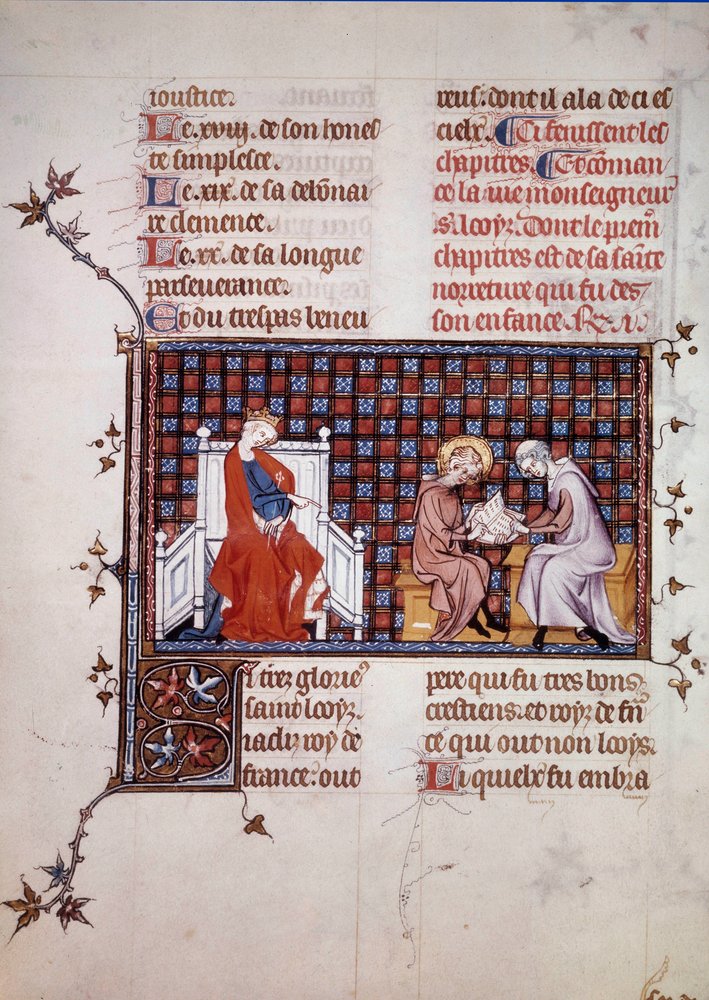 ioustice.
Le .xviij. de son hones
te simplesce.
Le .xix. de sa debonnai
re clemence.
Le .xx. de sa longue
perseuerance.
Et du trespas beneu
reus. dont il ala de ci es
cielx. Ci fenissent les
chapitres. Et cōman
ce la uie monseigneur
S. looyz. Dont le prem̄
chapitres est de sa sainte
norreture qui fu des
son enfance.
Li trez glorieꝰ
saint looyz.
iadiz roy de
france: out
pere qui fu tres bons
crestiens. et roy de frā
ce qui out non looys.
Li quielx fu embra